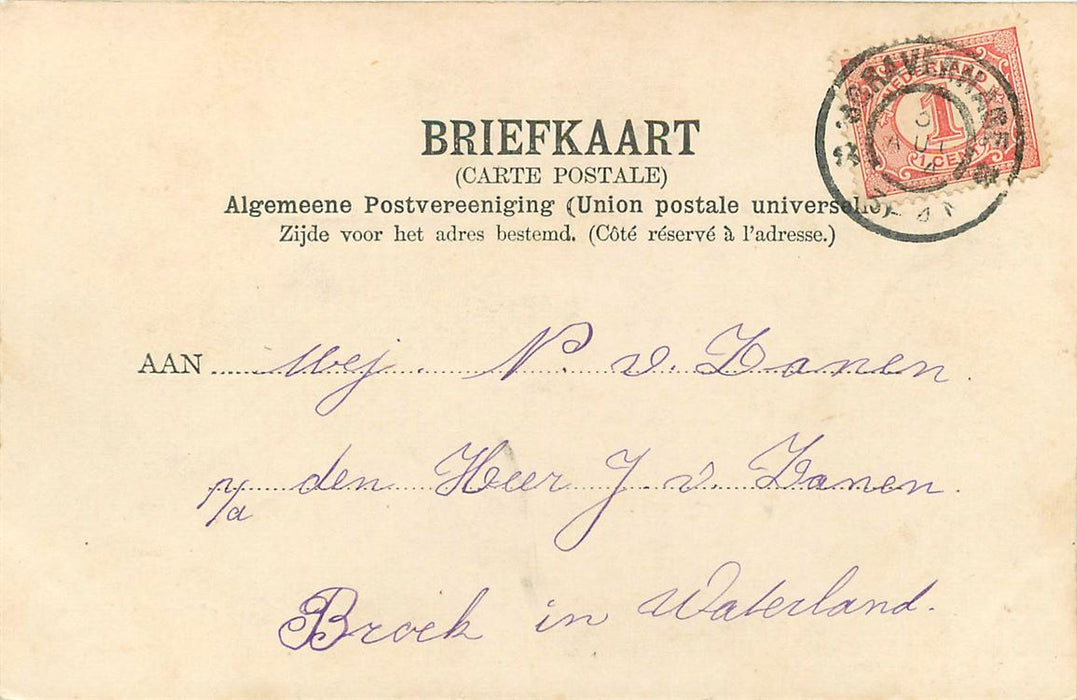 BRIEFKAART
(CARTE POSTALE)
Algemeene Postvereeniging (Union postale universelle)
Zijde voor het adres bestemd. (Côté réservé à l'adresse.)
NEDERLAND
1
1 CENT
'S GRAVENHAGE
AAN Mej. N. v. Zanen
p/a den Heer J. v. Zanen.
Broek in Waterland.